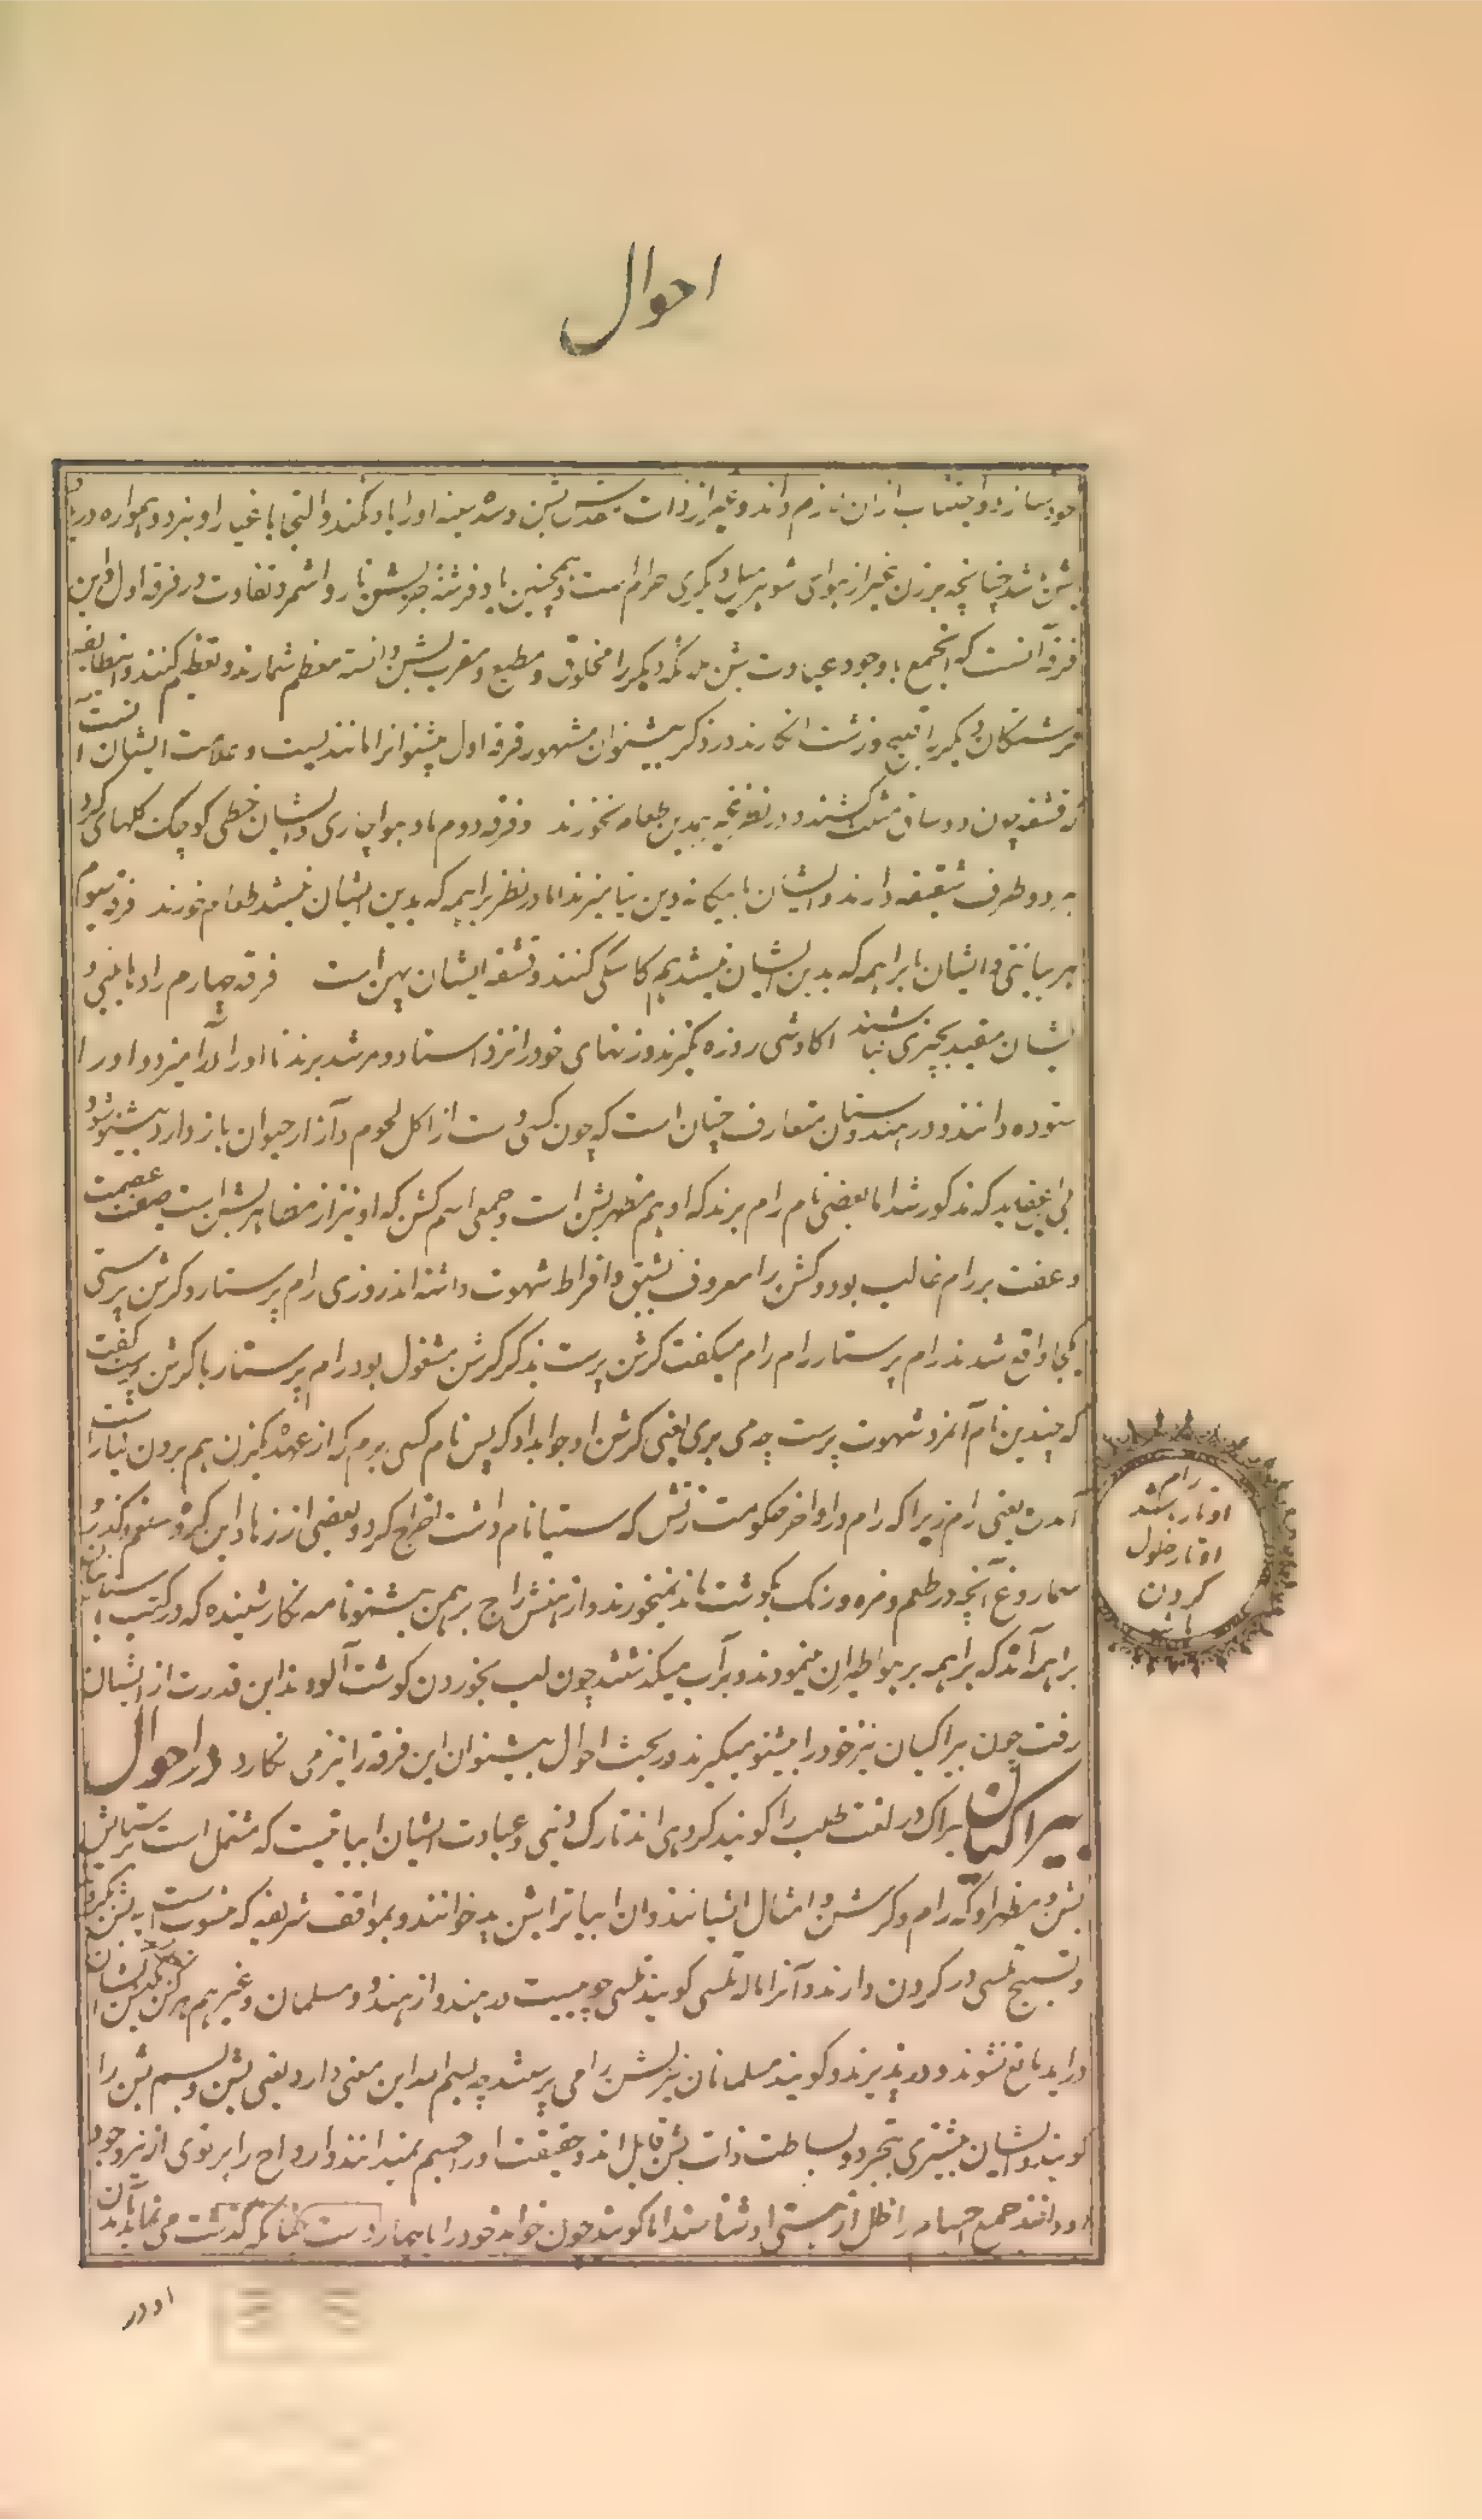 احوال
خود سازد و اجتناب از ان لازم داند و غیر از ذات مقدس بشن و شد یعنه او را یاد نکند و التجا با غیار او نبرد و همواره در یاد
بشن شد چنانچه بر زن غیر از هوای شوهر میل دیگری حرام است و همچنین یاد فرشته جز بشن ناروا شمرد و تفاوت در فرقه اول و این
فرقه آنست که انجمع با وجود عبادت بشن ملائکه دیگر را مخلوق و مطیع و مقرب بشن دانسته معظم شمارند و تعظیم کنند و اینطایفه
فرشتگان دیگر را قبیح و زشت انگارند در ذکر بیشنوان مشهور فرقه اول بیشنوانرا مانندیست و علامت ایشان آنست
که قشقه چون دو ساق مثلث کشند و در نظر غیر همدین طعام نخورند و فرقه دوم مادهواچاری و ایشان خطی کوچک کلهای کرد
به دو طرف شقیقه دارند و ایشان با بیگانه دین نیامیزند اما در نظر براهمه که بدین ایشان نیستند طعام خورند فرقه سیوم
هربیانتی و ایشان با براهمه که بدین ایشان نیستند هم کاسگی کنند و قشقه ایشان پهن است فرقه چهارم رادهابلبی و
ایشان مقید بچیزی نباشند اکادشی روزه نگیرند و زنهای خود را نزد استاد و مرشد برند تا او را در آمیزد و او را
ستوده دانند و در هندوستان متعارف چنان است که چون کسی دست از اکل لحوم و آزار حیوان باز دارد بیشنو شود
بی عقاید که مذکور شد اما بعضی نام رام برند که او هم مظهر بشن است و جمعی اسم کشن که او نیز از مظاهر بشن است صفت عصمت
و عفت بر رام غالب بود و کشن را معروف بشبق و افراط شهوت داشته اند روزی رام پرستار و کرشن پرستی
یکجا واقع شدند رام پرستار رام رام میگفت کرشن پرست بذکر کرشن مشغول بود رام پرستار با کرشن پرست گفت
که چندین نام آنمرد شهوت پرست چه می بری یعنی کرشن او جواب داد که پس نام کسی برم که از عهده یکزن هم برون نیارست
آمدن یعنی رام زیرا که رام در اواخر حکومت زنش که ستیا نام داشت اخراج کرد و بعضی از زهاد این گروه شلغم و گذر
سماروغ آنچه در طعم و مزه و رنگ بگوشت ماند نمیخورند و از منش راج برهمن بیشنو نامه نگار شنیده که در کتب باستانی
براهمه آمده که براهمه بر هوا طیران مینمودند و بر آب میگذشتند چون لب بخوردن گوشت آلودند این قدرت از ایشان
رفت چون بیراگیان نیز خود را بیشنو میگیرند در بحث احوال بیشنوان این فرقه را نیز می نگارد در احوال
بیراگیان بیراگ در لغت طلب را گویند گروهی اند تارک دنیی و عبادت ایشان ابیاتیست که مشتمل است بر ستایش
بشن و مظهر او که رام و کرشن و امثال ایشانند و ان ابیات را بشن پد خوانند و بمواقف شریفه که منسوب است به بشن بگردند
و تسبیح تلسی در گردن دارند و آنرا مالا تلسی گویند تلسی چوبیست در هند و از هندو و مسلمان و غیر هم هر کس بدین ایشان
در اید مانع نشوند و در پذیرند و گویند مسلمانان نیز بشن را می پرستند چه بسم الله این معنی دارد یعنی بشن و بسم بشن را
گویند و ایشان بیشتری بتجرد و بساطت ذات بشن قایل اند و حقیقت او را جسیم نمیدانند و ارواح را پرتوی از نور وجود
او دانند جمیع اجسام را ظل از هستی او شناسند اما گویند چون خواهد خود را با چهار دست چنانکه گذشت می نماید بدان
او در
رام
اوتار بشند
اوتار حلول
کردن